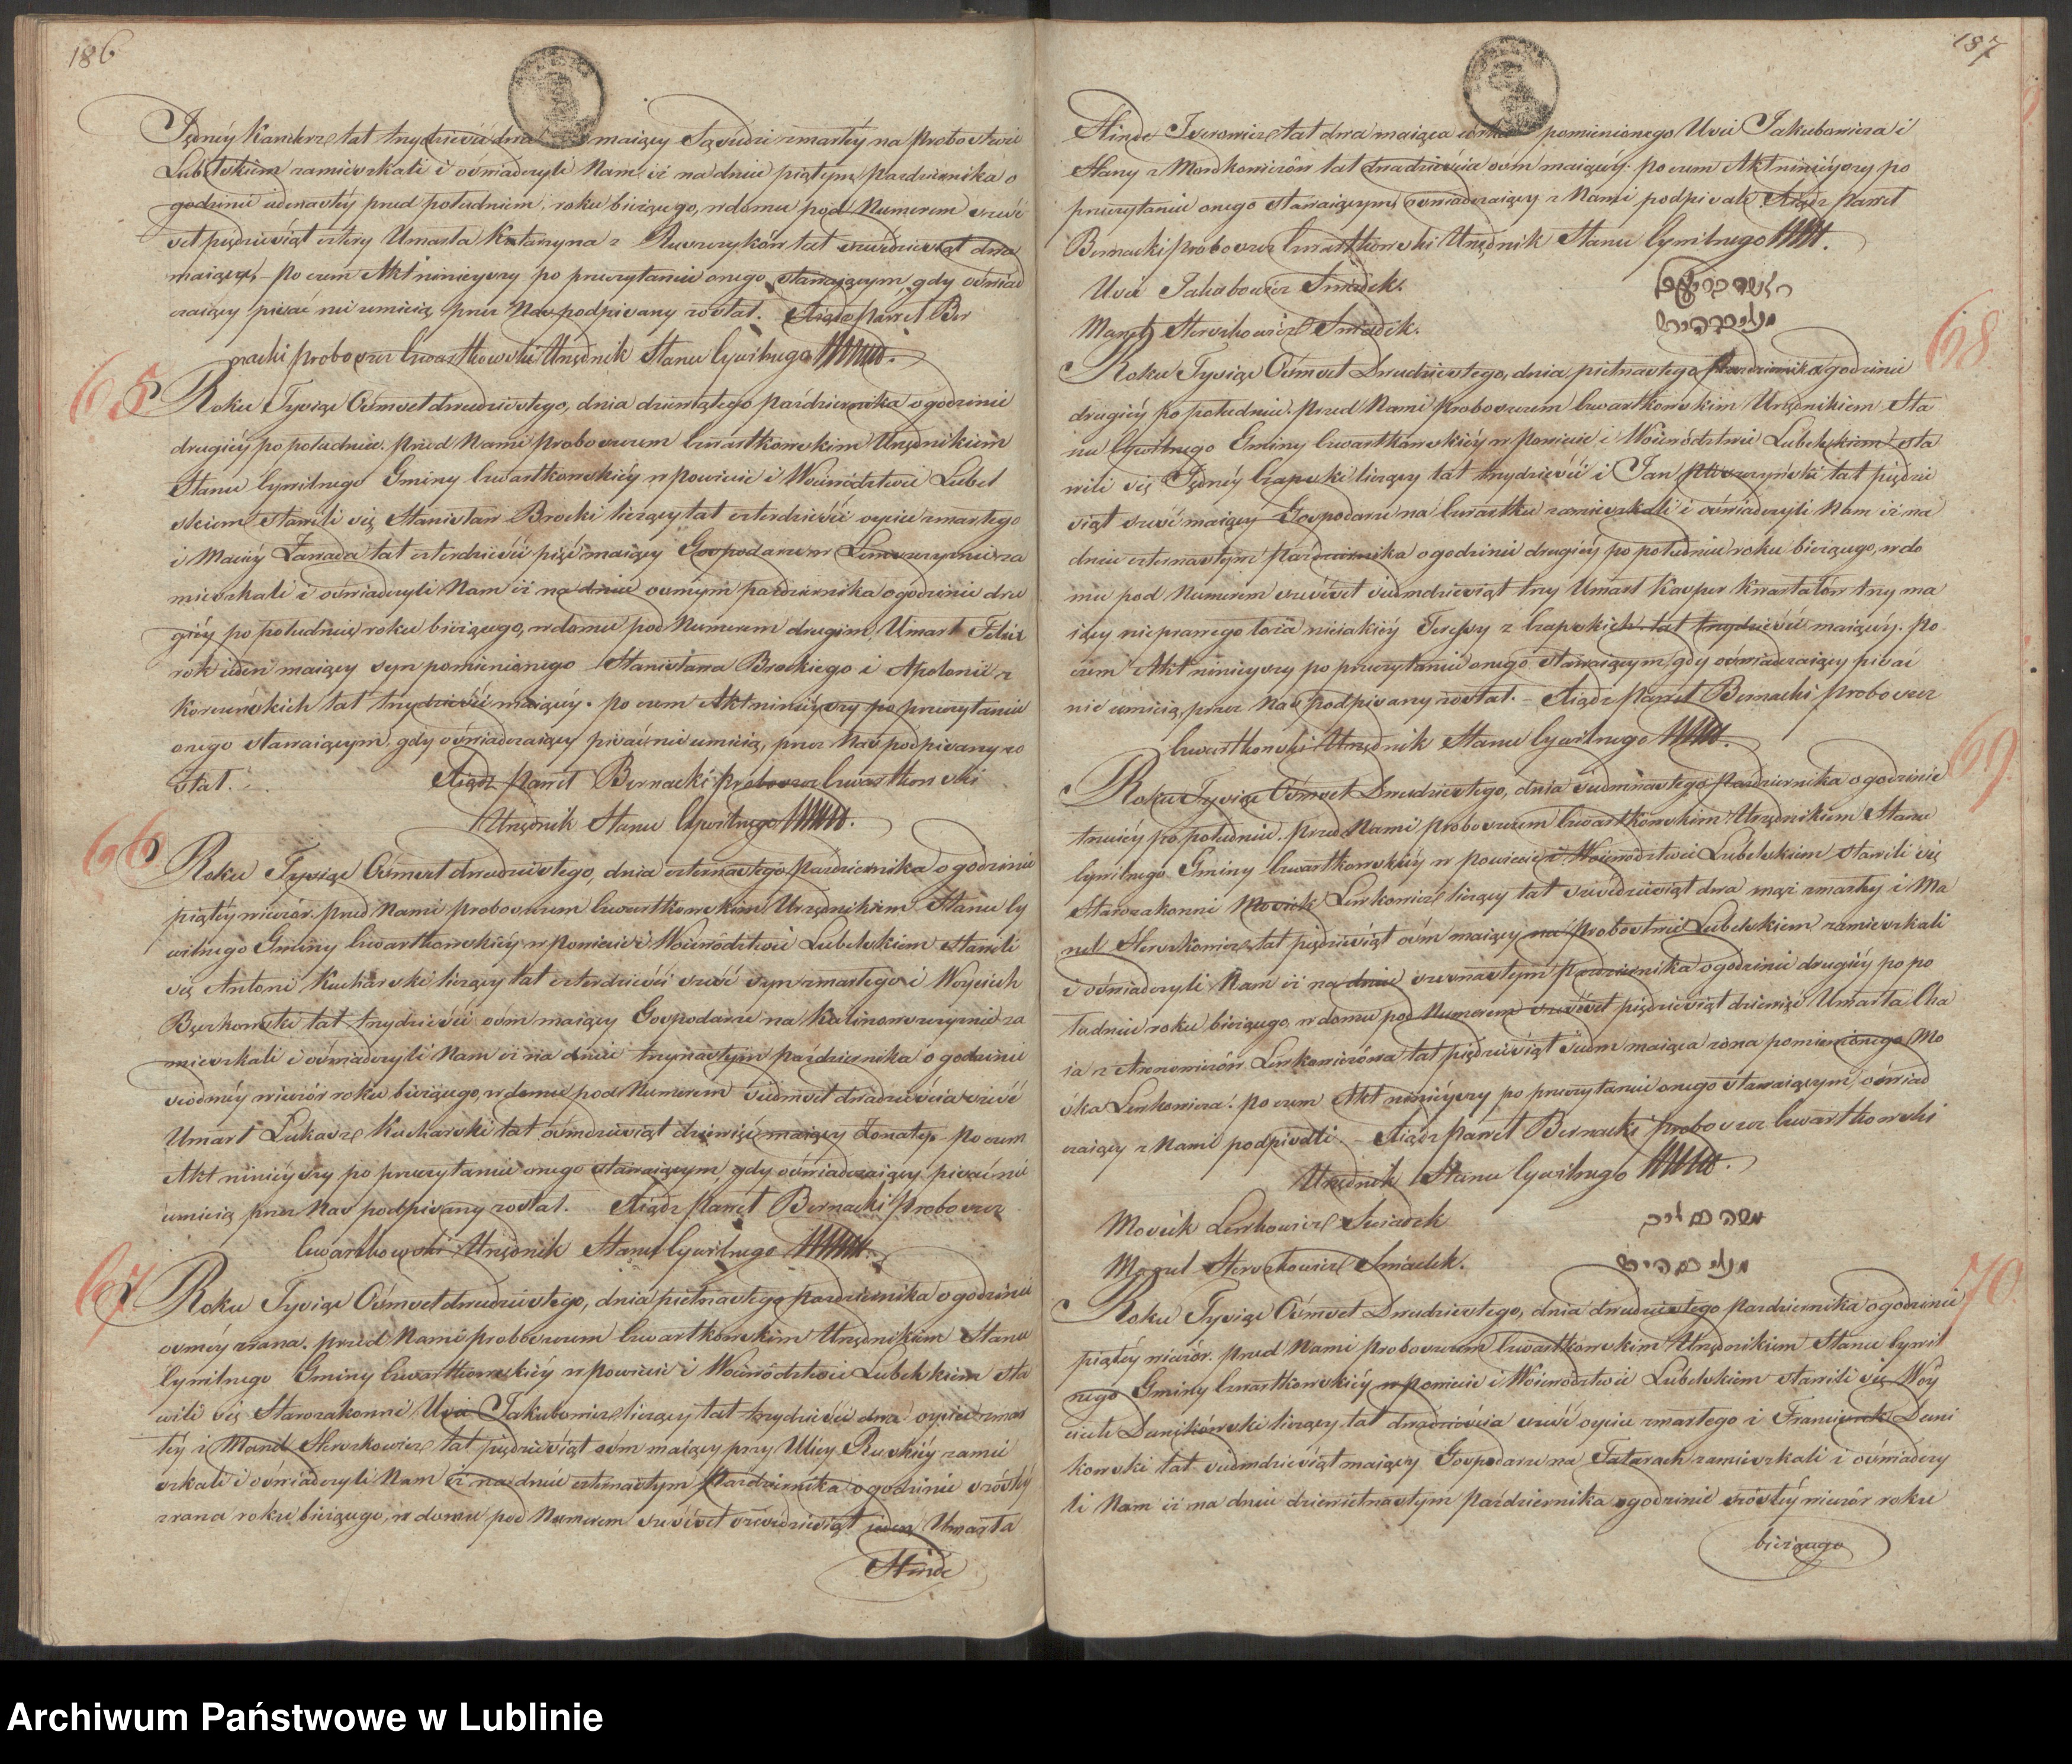 186
Jędrzéy Kanderz lat trzydzieści dwa maiący Sąsiedzi zmarłéy na Probostwie
Lubelskiem zamieszkali i oświadczyli Nam iż na dniu piątym Października o
godzinie iedenastéy przed południem, roku bieżącego, w domu pod Numerem sześć
set pięćdziesiąt cztery Umarła Katarzyna z lat sześćdziesiąt dwa
maiąca, – po czem Akt ninieyszy po przeczytaniu onego stawaiącym, gdy oświad
czaiący pisać nie umieią, przez Nas podpisany został. Xiądz Paweł Ber
nacki Proboszcz Czwartkowski Urzędnik Stanu Cywilnego
65
Roku Tysiąc Ośmset dwudziestego, dnia dziewiątego Października o godzinie
drugiéy po południu. przed Nami Proboszczem Czwartkowskim Urzędnikiem
Stanu Cywilnego Gminy Czwartkowskiéy w Powiecie i Woiewództwie Lubel
skiem stawili się Stanisław Brocki liczący lat czterdzieści oyciec zmarłego
i Maciéy Zawada lat czterdzieści pięć maiący Gospodarze w za
mieszkali i oświadczyli Nam iż na dniu osmym października o godzinie dru
giéy po południu roku bieżącego, w domu pod Numerem drugim, Umarł Felix
rok ieden maiący syn pomienionego Stanisława Brockiego i Apolonii z
Korzeńskich lat trzydzieści maiącéy. po czem Akt ninieyszy po przeczytaniu
onego stawaiącym, gdy oświadczaiący pisać nie umieią, przez Nas podpisany zo
stał. Xiądz Paweł Bernacki Proboszcz Czwartkowski
Urzędnik Stanu Cywilnego
66
Roku Tysiąc Ośmset dwudziestego, dnia czternastego Października o godzinie
piątéy wieczór. przed Nami Proboszczem Czwartkowskim Urzędnikiem Stanu Cy
wilnego Gminy Czwartkowskiéy w Powiecie i Woiewództwie Lubelskiem stawili
się Antoni Kucharski liczący lat czterdzieści sześć syn zmarłego i Woyciech
Bąckowski lat trzydzieści ośm maiący Gospodarze na Kalinowszczyznie za
mieszkali i oświadczyli Nam iż na dniu trzynastym października o godzinie
siódméy wieczór roku bieżącego, w domu pod Numerem siedmset dwadzieścia sześć
Umarł Łukasz Kucharski lat ośmdziesiąt dziewięć maiący Żonaty. – po czem
Akt ninieyszy po przeczytaniu onego stawaiącym, gdy oświadczaiący pisać nie
umieią przez Nas podpisany został. Xiądz Paweł Bernacki Proboszcz
Czwartkowski Urzędnik Stanu Cywilnego
67
Roku Tysiąc Ośmset dwudziestego, dnia piętnastego października o godzinie
osméy zrana. przed Nami Proboszczem Czwartkowskim Urzędnikiem Stanu
Cywilnego Gminy Czwartkowskiéy w Powiecie i Woiewództwie Lubelskiem sta
wili się Starozakonni Uszer Jakubowicz liczący lat trzydzieści dwa oyciec zmar
łéy i Manel Herszkowicz lat pięćdziesiąt ośm maiący przy Ulicy Ruskiéy zamie
szkali i oświadczyli Nam iż na dniu czternastym Października o godzinie szóstéy
zrana roku bieżącego, w domu pod Numerem sześćset sześćdziesiąt ieden Umarła
Hinde
187
Hinde Jserowicz lat dwa maiąca córka pomienionego Uszer Jakubowicza i
Hany z Mordkowiczów lat dwadzieścia ośm maiącéy. po czem Akt ninieyszy po
przeczytaniu onego stawaiącym, oświadczaiący z Nami podpisali. Xiądz Paweł
Bernacki Proboszcz Czwartkowski Urzędnik Stanu Cywilnego
Uszer Jakubowicz Swiadek.
Manel Herszkowicz Swiadek.
68
Roku Tysiąc Ośmset Dwudziestego, dnia piętnastego Października godzinie
drugiéy po południu. przed Nami Proboszczem Czwartkowskim Urzędnikiem Sta
nu Cywilnego Gminy Czwartkowskiéy w Powiecie i Woiewództwie Lubelskiem sta
wili się Jędrzéy Czapski liczący lat trzydzieści i Jan lat pięćdzie
siąt sześć maiący Gospodarze na Czwartku zamieszkali i oświadczyli Nam iż na
dniu czternastym Października o godzinie drugiéy po południu roku bieżącego, w do
mu pod Numerem sześćset siedmdziesiąt trzy Umarł Kasper kwartałów trzy ma
iący nieprawego łoża nieiakiéy Teressy z Czapskich lat trzydzieści maiącéy. po
czem Akt ninieyszy po przeczytaniu onego stawaiącym, gdy oświadczaiący pisać
nie umieią, przez Nas podpisany został. – Xiądz Paweł Bernacki Proboszcz
Czwartkowski Urzędnik Stanu Cywilnego
69
Roku Tysiąc Ośmset Dwudziestego, dnia siedmnastego października o godzinie
trzeciéy po południu. przed Nami Proboszczem Czwartkowskim Urzędnikiem Stanu
Cywilnego Gminy Czwartkowskiéy w Powiecie i Woiewództwie Lubelskiem stawili się
Starozakonni Mosiek Lewkowicz liczący lat sześćdziesiąt dwa mąż zmarłéy i Ma
nel Herszkowicz lat pięćdziesiąt ośm maiący na Probostwie Lubelskiem zamieszkali
i oświadczyli Nam iż na dniu szesnastym października o godzinie drugiéy po po
łudniu roku bieżącego, w domu pod Numerem sześćset pięćdziesiąt dziewięć Umarła Cha
ia z Aronowiczów Lewkowiczowa lat pięćdziesiąt siedm maiąca żona pomienionego Mo
śka Lewkowicza. po czem Akt ninieyszy po przeczytaniu onego stawaiącym, oświad
czaiący z Nami podpisali. – Xiądz Paweł Bernacki Proboszcz Czwartkowski
Urzędnik Stanu Cywilnego
Mosiek Lewkowicz Swiadek משה בן לייב
Manel Herszkowicz Swiadek.
70
Roku Tysiąc Ośmset Dwudziestego, dnia dwudziestego października o godzinie
piątéy wieczór. przed Nami Proboszczem Czwartkowskim Urzędnikiem Stanu Cywil
nego Gminy Czwartkowskiéy w Powiecie i Woiewództwie Lubelskiem stawili się Woy
ciech Danikowski liczący lat dwadzieścia sześć oyciec zmarłego i Franciszek Dani
kowski lat siedmdziesiąt maiący Gospodarze na Tatarach zamieszkali i oświadczy
li Nam iż na dniu dziewiętnastym Października o godzinie szóstéy wieczór roku
bieżącego
Archiwum Państwowe w Lublinie